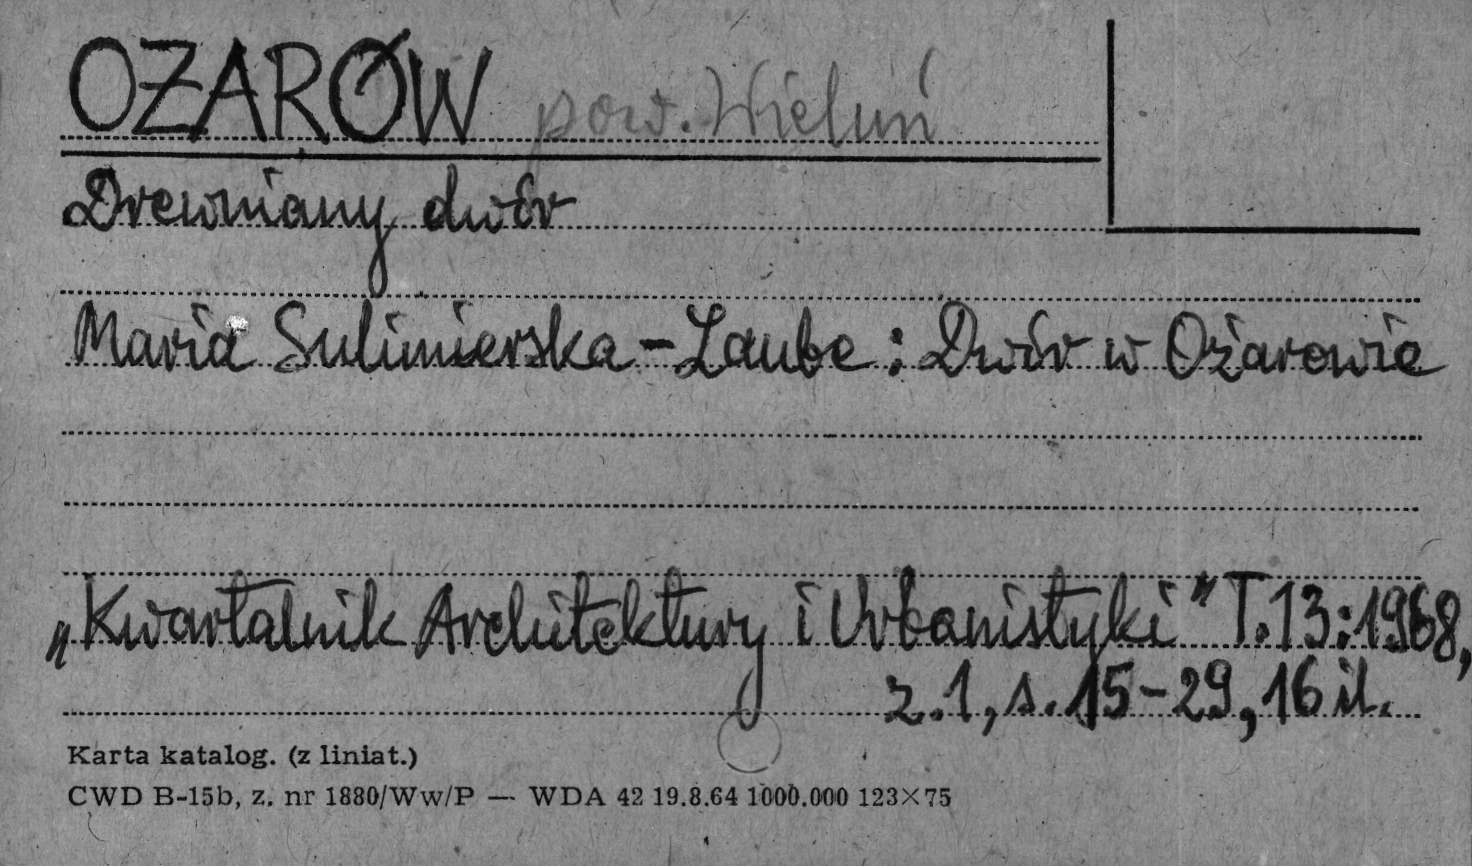 OŻARÓW pow. Wieluń
Drewniany dwór
Maria Sulimierska-Laube: Dwór w Ożarowie
„Kwartalnik Architektury i Urbanistyki" T.13:1968,
z.1, s.15-29, 16 il.
Karta katalog. (z liniat.)
CWD B-15b, z. nr 1880/Ww/P — WDA 42 19.8.64 1000.000 123×75